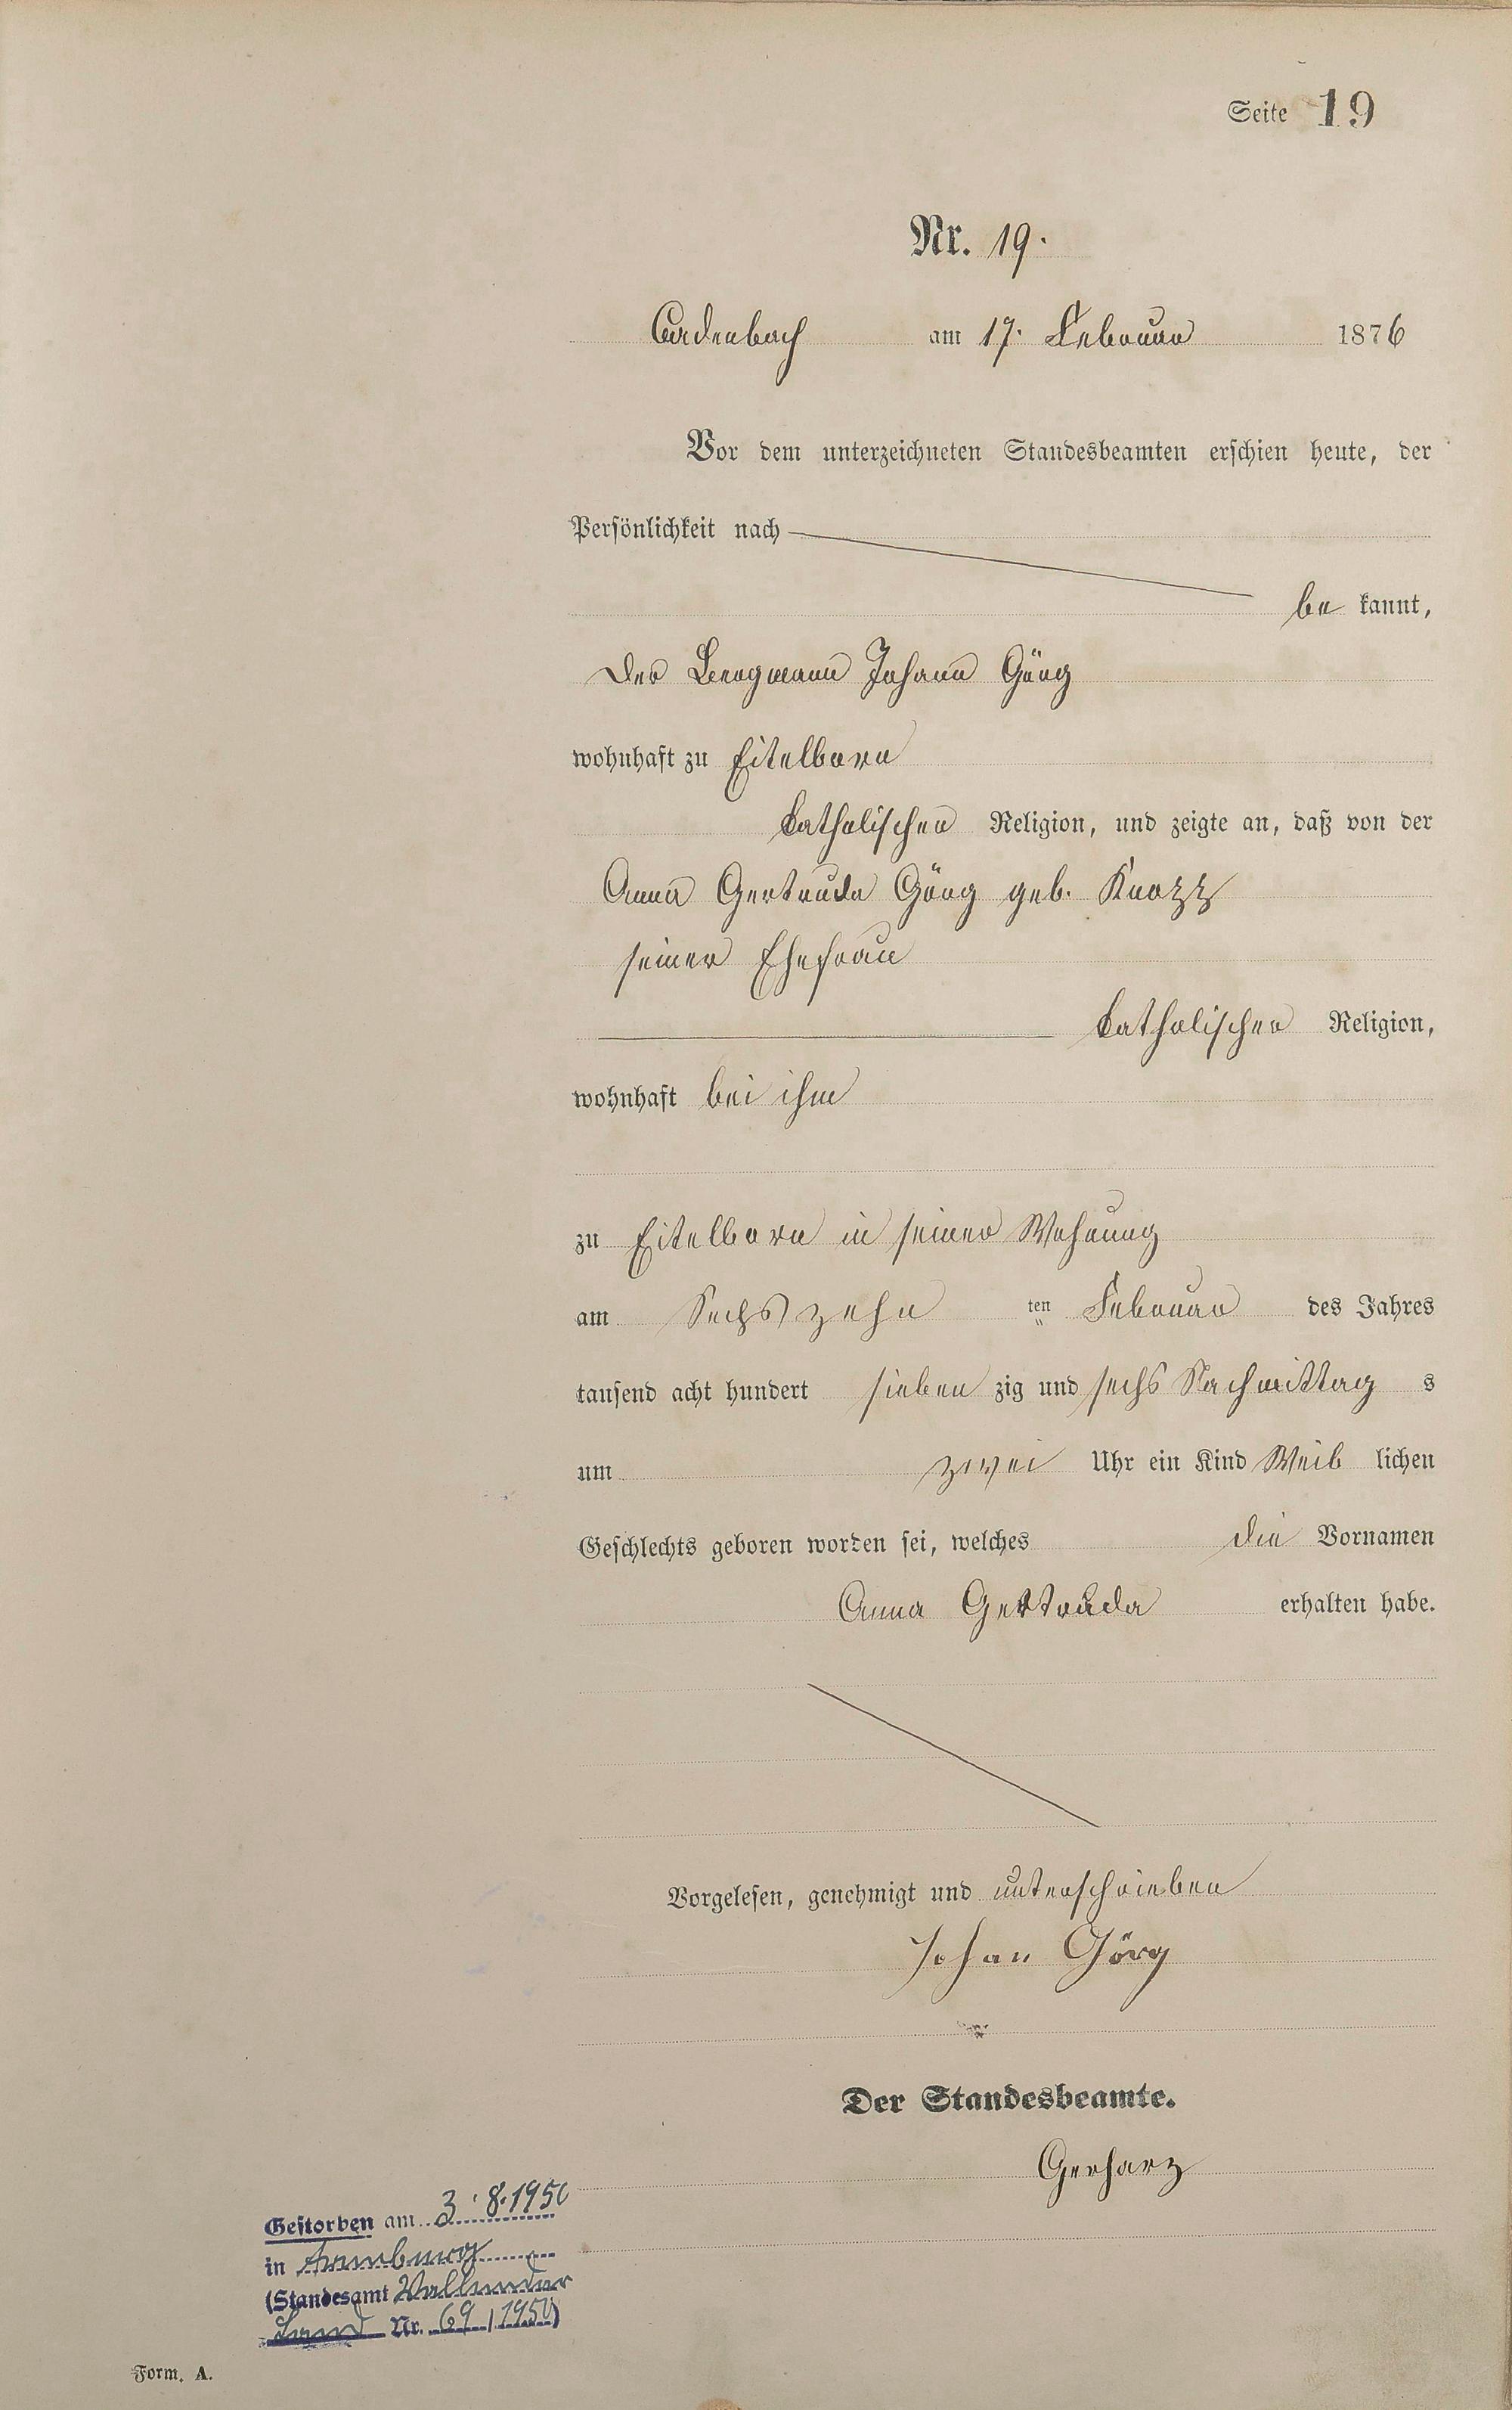 Seite 19
Nr. 19.
Cadenbach am 17. Februar 1876
Vor dem unterzeichneten Standesbeamten erschien heute, der
Persönlichkeit nach
be kannt,
der Bergmann Johann Görg
wohnhaft zu Eitelborn
katholischer Religion, und zeigte an, daß von der
Anna Gertruda Görg geb. Knopp
seiner Ehefrau
katholischer Religion,
wohnhaft bei ihm
zu Eitelborn in seiner Wohnung
am Sechszehn ten Februar des Jahres
tausend acht hundert sieben zig und sechs Nachmittag s
um zwei Uhr ein Kind Weib lichen
Geschlechts geboren worden sei, welches die Vornamen
Anna Gertruda erhalten habe.
Vorgelesen, genehmigt und unterschrieben
Johan Görg
Der Standesbeamte.
Gerharz
Gestorben am 3.8.1950
in Arenberg
(Standesamt Vallendar
Land Nr. 69/1950)
Form. A.